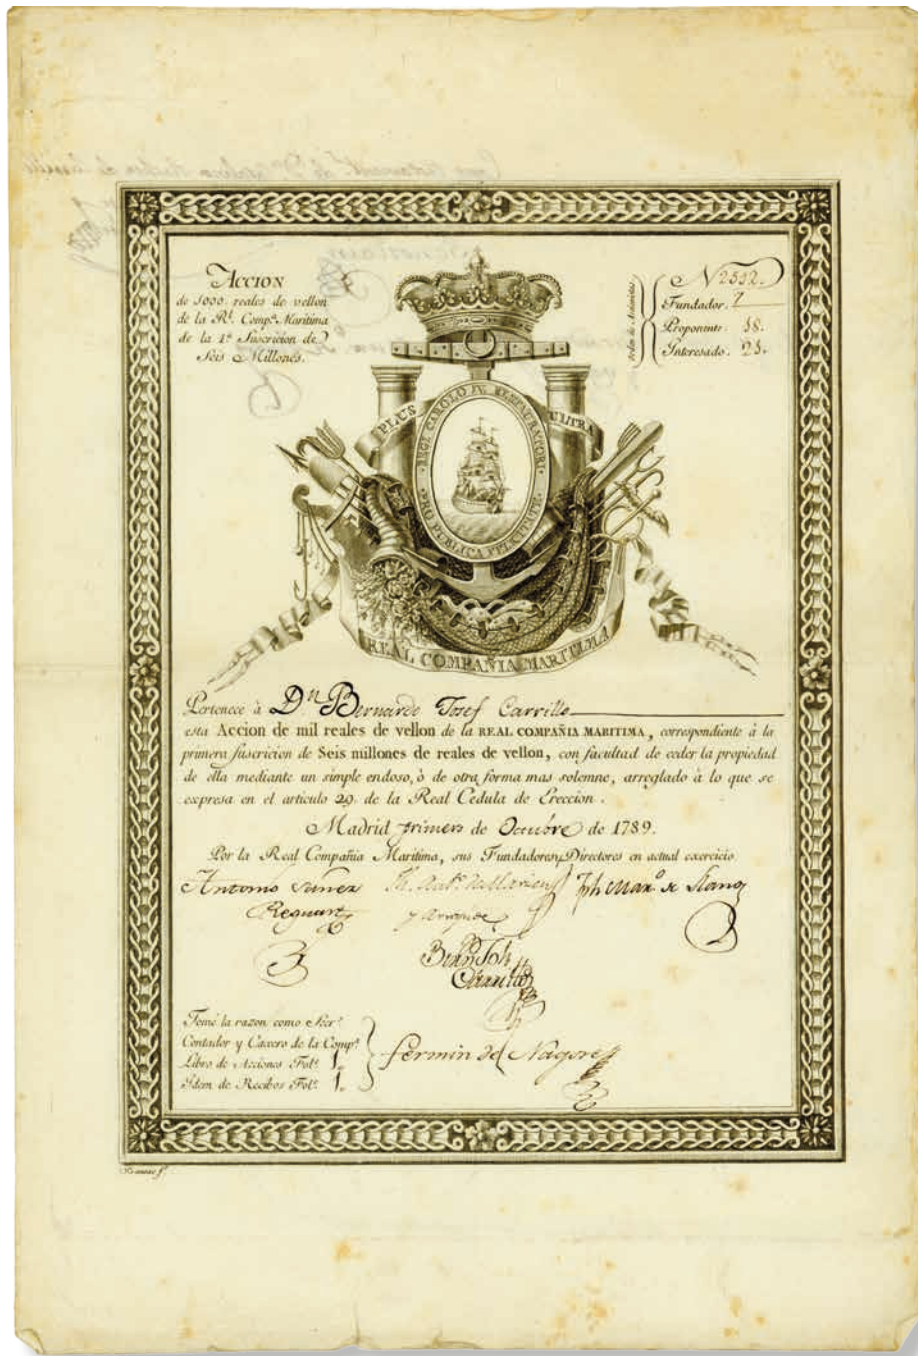 ACCION
de 1000. reales de vellon
de la Rl. Compa. Maritima
de la 1a. Suscricion de
Seis Millones.
N 2512.
Fundador.
Proponente. 18.
Interesado. 21.
PLUS ULTRA
REGI CAROLO IV. RESTAURATORI.
PRO PUBLICA FELICITATE.
REAL COMPAÑIA MARITIMA
Pertenece à Dn. Bernardo Josef Carrillo
esta Accion de mil reales de vellon de la REAL COMPAÑIA MARITIMA, correspondiente à la
primera suscricion de Seis millones de reales de vellon, con facultad de ceder la propiedad
de ella mediante un simple endoso, ò de otra forma mas solemne, arreglado à lo que se
expresa en el articulo 29. de la Real Cedula de Ereccion.
Madrid primero de Octubre de 1789.
Por la Real Compañia Maritima, sus Fundadores, Directores en actual exercicio
Antonio Sañez
Reguart
y
Carrillo
Tomé la razon como Secr.o
Contador y Caxero de la Compa.
Libro de Acciones Fol.o 1.
Idem de Recibos Fol.o 1.
Fermin de Nagore